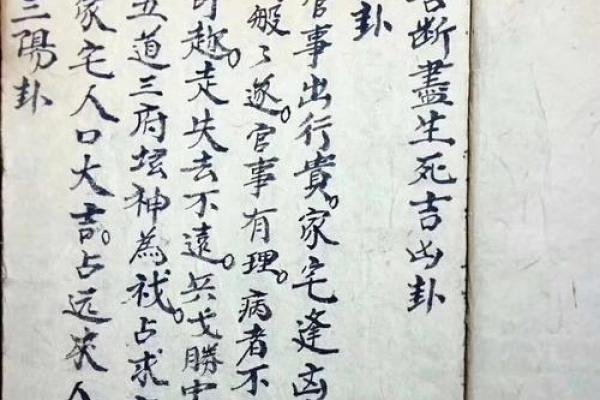 斷盡生死吉凶卦
卦
官事出行貴。家宅逢凶
般々遂。官事有理。病者不
趂。走失去不遠。兵戈勝
五道三府坛神為祅。占求
家宅人口大吉。占远来人
三陽卦